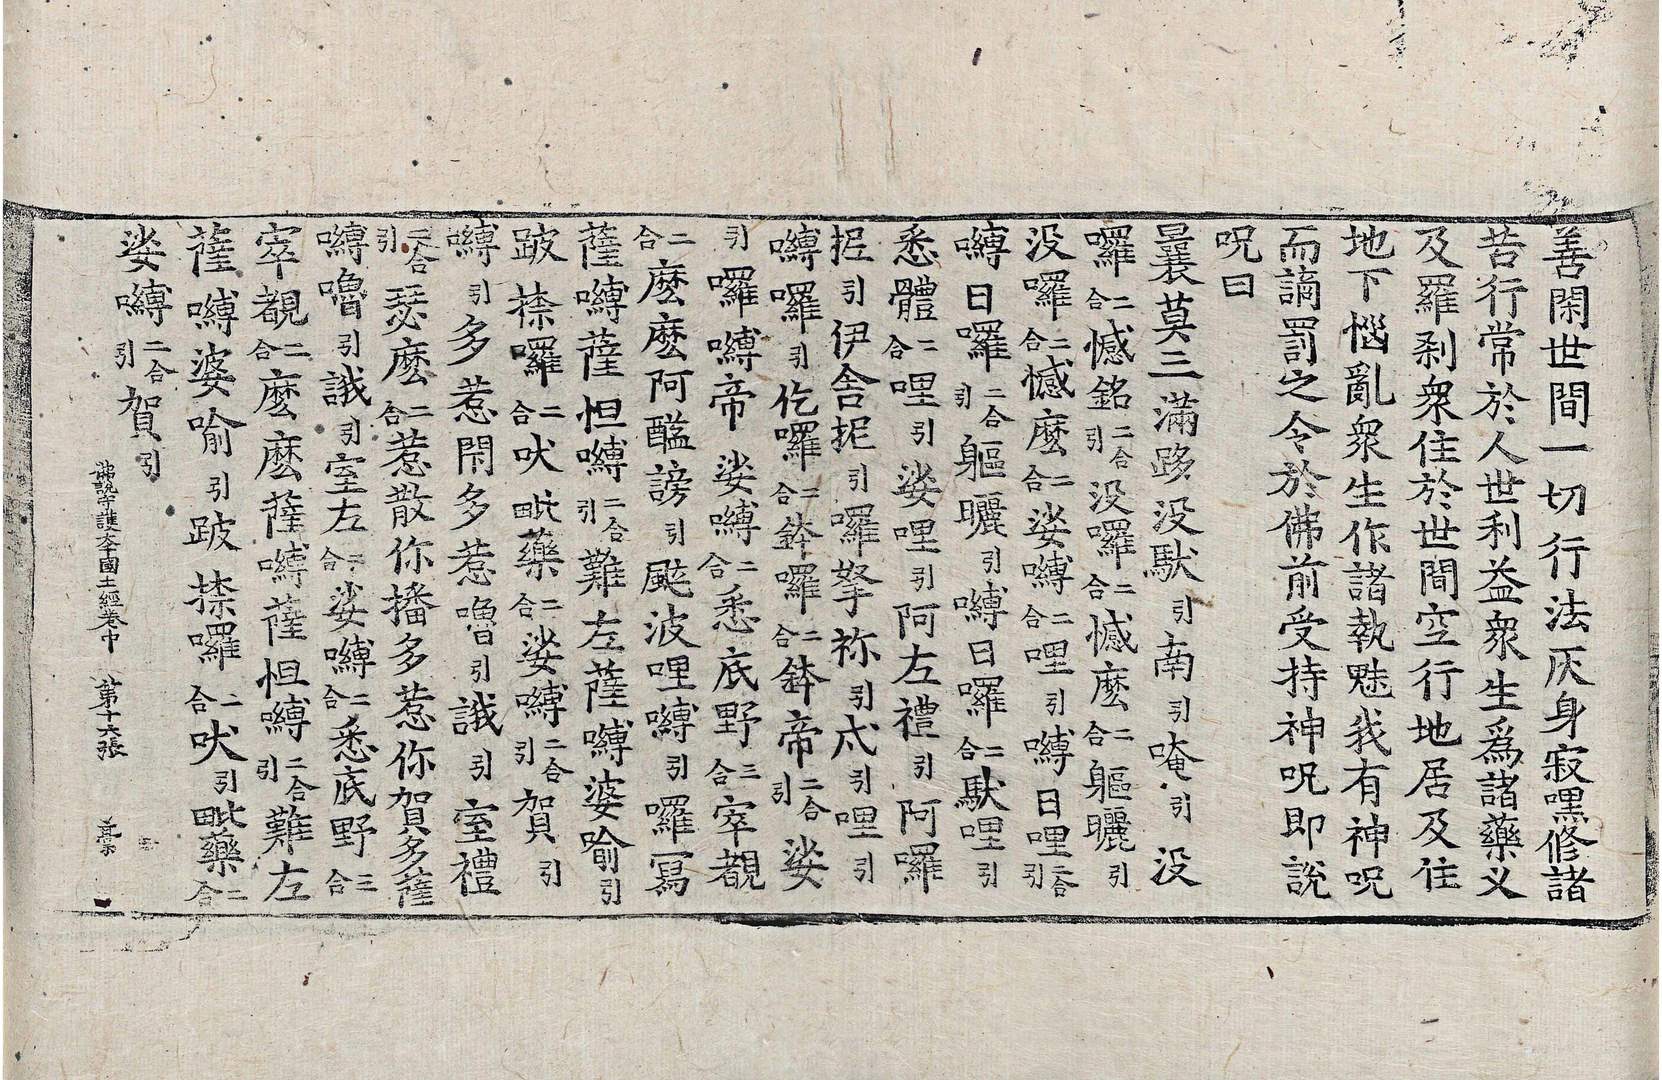 善閑世間一切行法厌身寂嘿修諸
苦行常於人世利益衆生爲諸藥义
及羅刹衆住於世間空行地居及住
地下惱亂衆生作諸執魅我有神呪
而謫罰之令於佛前受持神呪即說
呪曰
曩莫三滿跢没馱引南引唵引没
囉二合憾銘二合引没囉二合憾麽二合軀曬引
没囉二合憾麽二合娑嚩二合哩引嚩日哩二合引
嚩日囉二合引軀曬引嚩日囉二合馱哩引
悉體二合哩引娑哩引阿左禮引阿囉
抳引伊舍抳引囉拏祢引忒引哩引
嚩囉引仡囉二合鉢囉二合鉢帝二合引娑
引囉嚩帝娑嚩二合悉底野三合窣覩
二合麽麽阿醯謗引颰波哩嚩引囉寫
薩嚩薩怛嚩二合引難左薩嚩婆喻引
跛捺囉二合吠毗藥二合娑嚩二合引賀引
嚩引多惹閑多惹嚕引誐引室禮
二合引瑟麽二合惹散你播多惹你賀多薩
嚩嚕引誐引室左二合娑嚩二合悉底野三合
窣覩二合麽麽薩嚩薩怛嚩二合引難左
薩嚩婆喻引跛捺囉二合吠引毗藥二合
娑嚩二合引賀引
佛說守護大千國土經卷中　第十六張